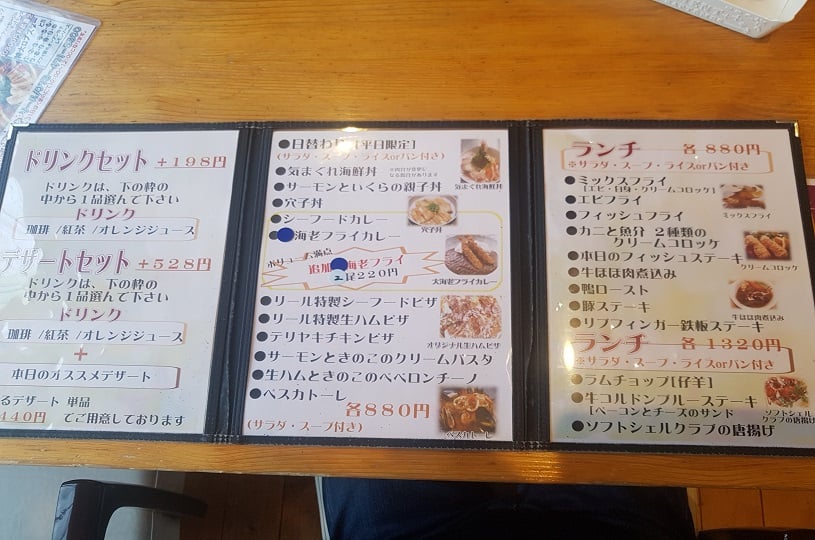 ドリンクセット +198円
ドリンクは、下の枠の
中から1品選んで下さい
ドリンク
珈琲 /紅茶 /オレンジジュース
デザートセット +528円
ドリンクは、下の枠の
中から1品選んで下さい
ドリンク
珈琲 /紅茶 /オレンジジュース
+
本日のオススメデザート
るデザート 単品
440円 でご用意しております
●日替わり【平日限定】
(サラダ・スープ・ライスorパン付き)
●気まぐれ海鮮丼
●サーモンといくらの親子丼
気まぐれ海鮮丼
●穴子丼
●シーフードカレー
穴子丼
海老フライカレー
ボリューム満点
追加 海老フライ
2尾220円
大海老フライカレー
●リール特製シーフードピザ
●リール特製生ハムピザ
●テリヤキチキンピザ
オリジナル生ハムピザ
●サーモンときのこのクリームパスタ
●生ハムときのこのペペロンチーノ
●ペスカトーレ
各880円
(サラダ・スープ付き)
ペスカトーレ
ランチ 各 880円
※サラダ・スープ・ライスorパン付き
●ミックスフライ
[エビ・白身・クリームコロッケ]
●エビフライ
●フィッシュフライ
ミックスフライ
●カニと魚分 2種類の
クリームコロッケ
●本日のフィッシュステーキ
クリームコロッケ
●牛ほほ肉煮込み
●鴨ロースト
●豚ステーキ
牛ほほ肉煮込み
●リブフィンガー鉄板ステーキ
ランチ 各 1320円
※サラダ・スープ・ライスorパン付き
●ラムチョップ[仔羊]
●牛コルドンブルーステーキ
[ベーコンとチーズのサンド
ソフトシェル
クラブの唐揚げ
●ソフトシェルクラブの唐揚げ